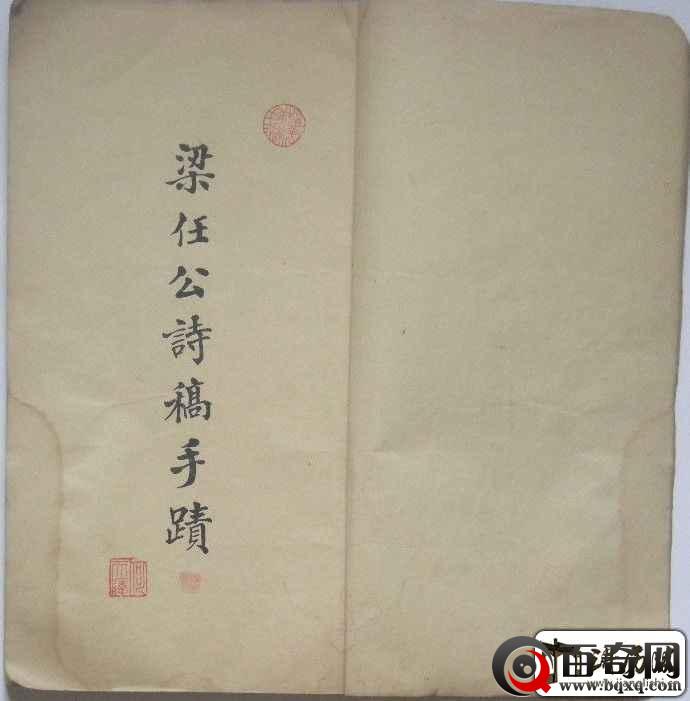 梁任公詩稿手蹟
百奇网
www.bqxq.com